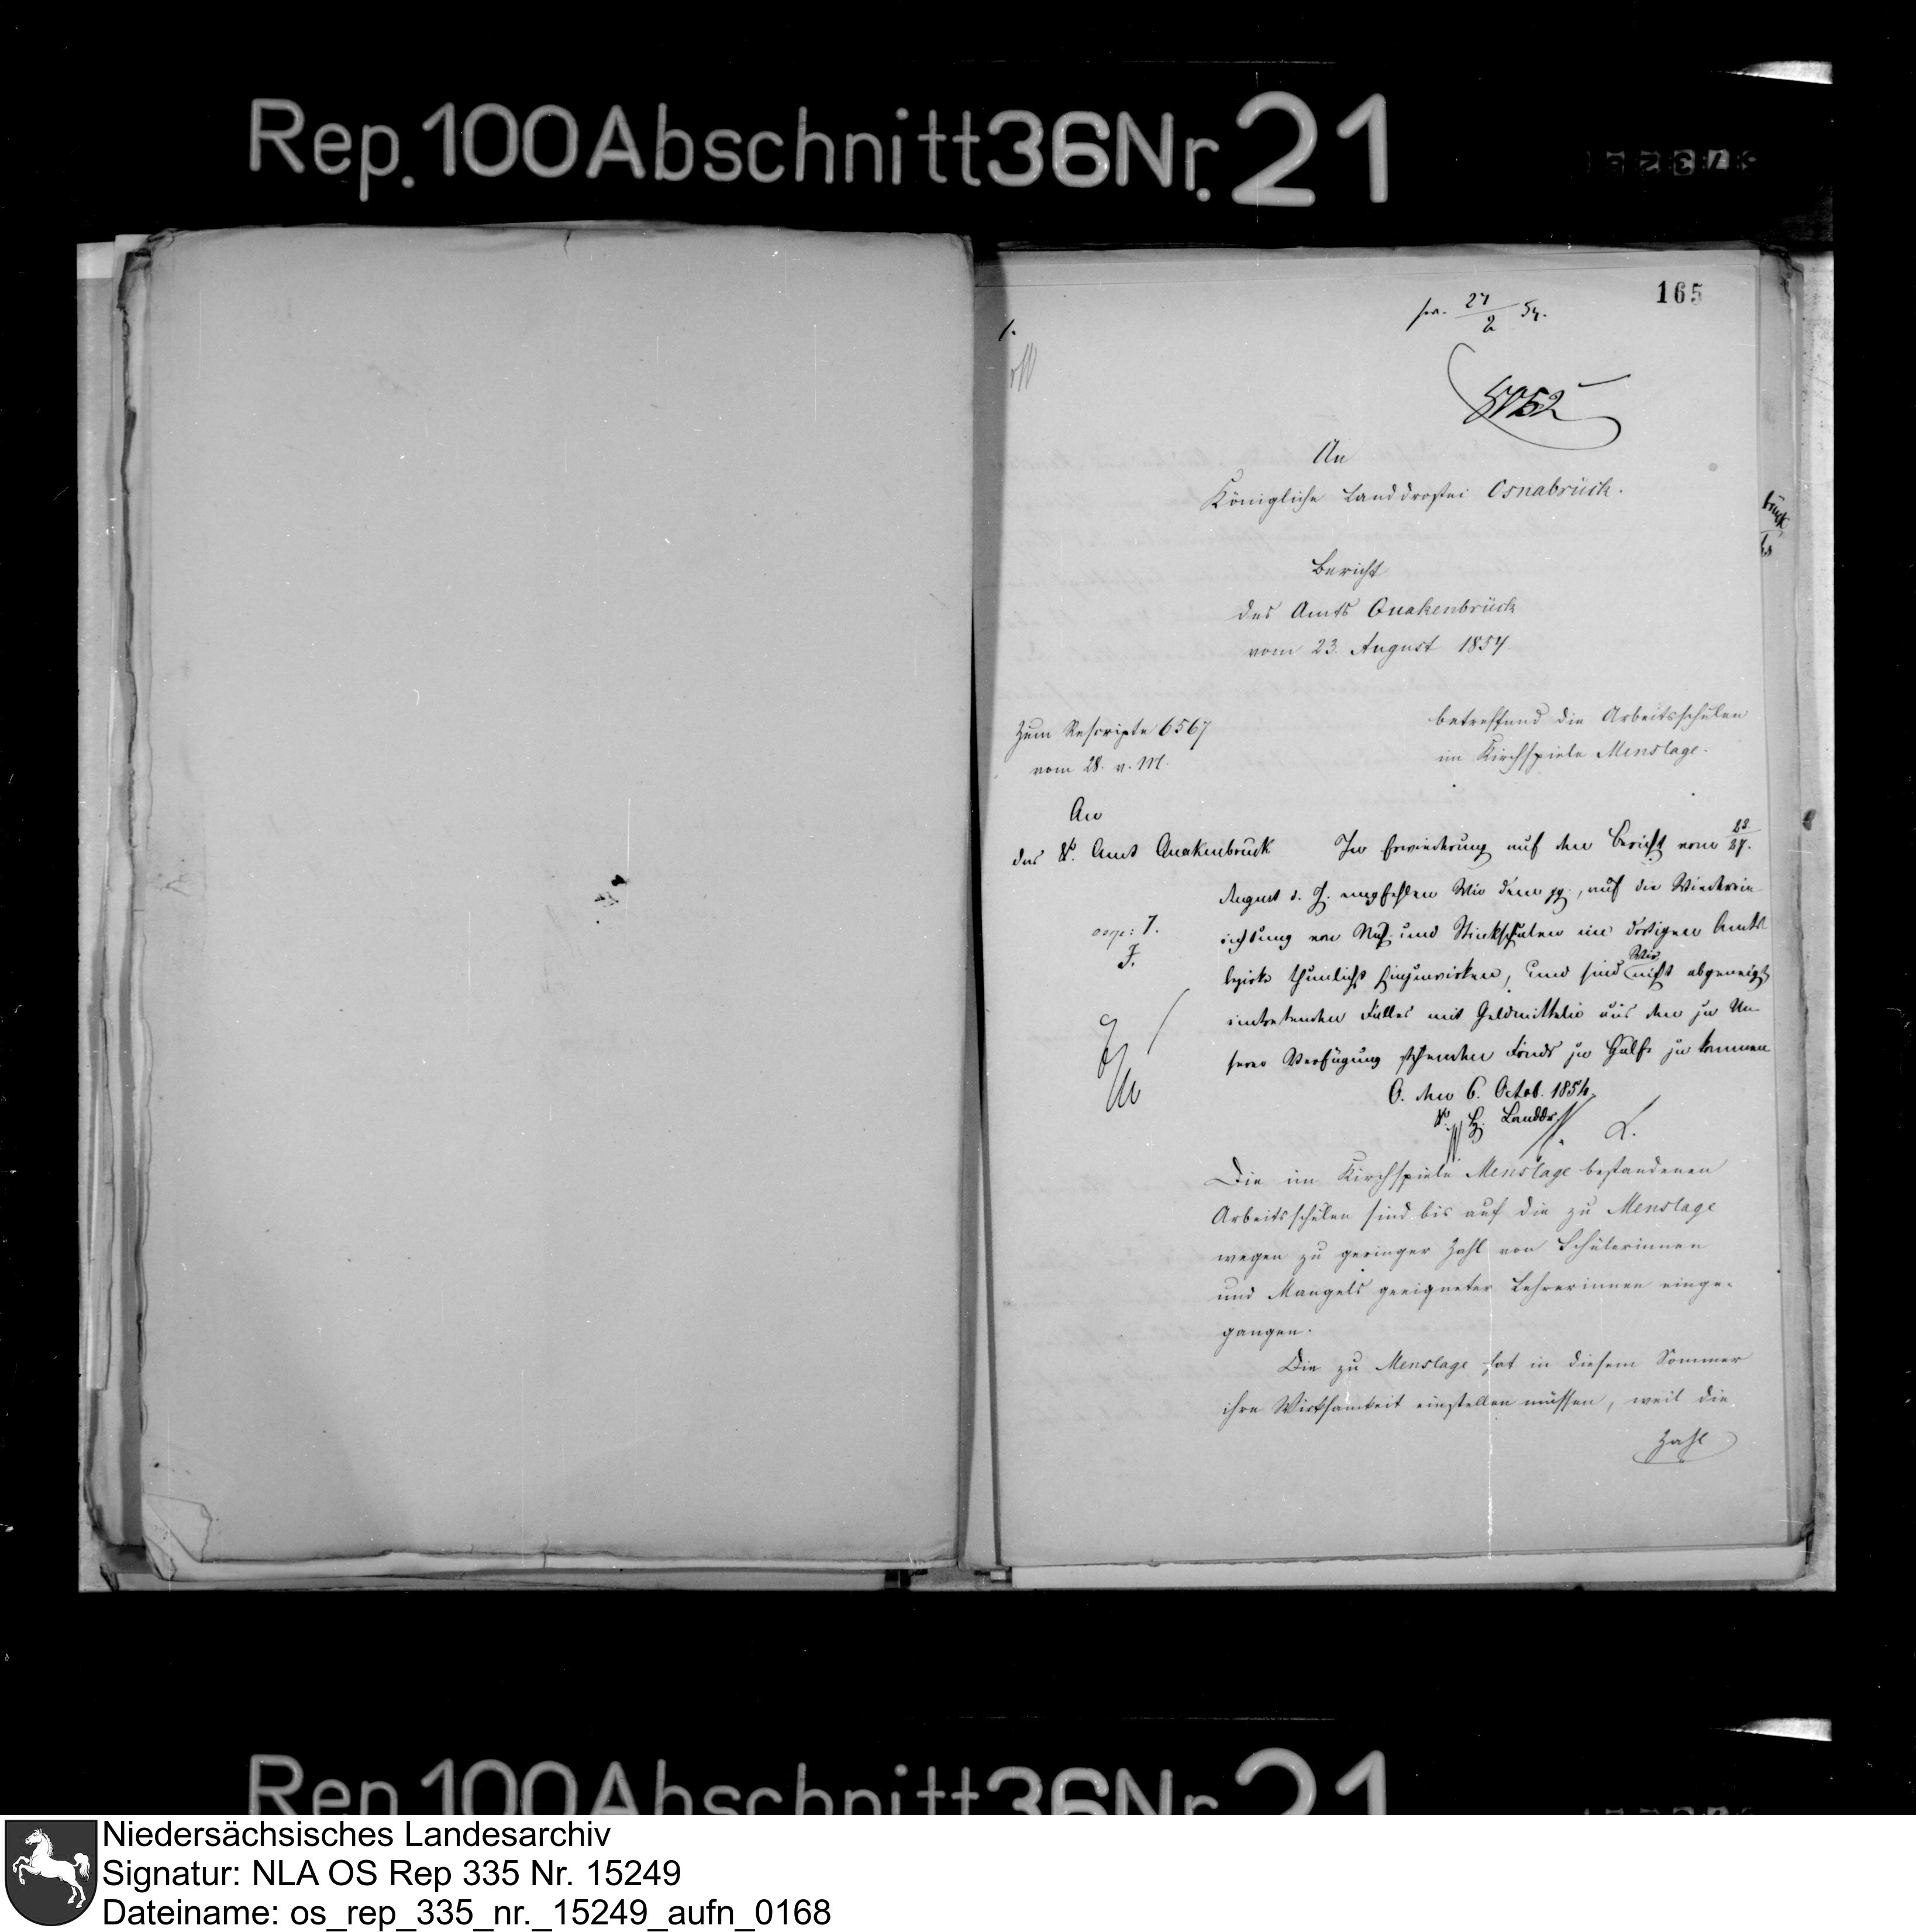 Rep. 100 Abschnitt 36 Nr. 21
165
An
Königliche Landdrostei Osnabrück.
Bericht
des Amts Quakenbrück
vom 23. August 1854.
betreffend die Arbeitsschulen
im Kirchspiele Menslage.
Zum Rescripte 6567
vom 28. v. M.
An
das K. Amt Quakenbrück
In Erwiederung auf den Bericht vom 23/27.
August d. J. empfehlen Wir dem pp., auf die Wiederein-
richtung von Näh- und Strickschulen im dortigen Amts-
bezirke thunlichst hinzuwirken, und sind Wir nicht abgeneigt
eintretenden Falles mit Geldmitteln aus den zu Un-
serer Verfügung stehenden Fonds zu Hülfe zu kommen
O. den 6. Octob. 1854.
K. H. Landdr.
L.
Die im Kirchspiele Menslage bestandenen
Arbeitsschulen sind bis auf die zu Menslage
wegen zu geringer Zahl von Schülerinnen
und Mangels geeigneter Lehrerinnen einge-
gangen.
Die zu Menslage hat in diesem Sommer
ihre Wirksamkeit einstellen müssen, weil die
Zahl
Rep. 100 Abschnitt 36 Nr. 21
Niedersächsisches Landesarchiv
Signatur: NLA OS Rep 335 Nr. 15249
Dateiname: os_rep_335_nr._15249_aufn_0168